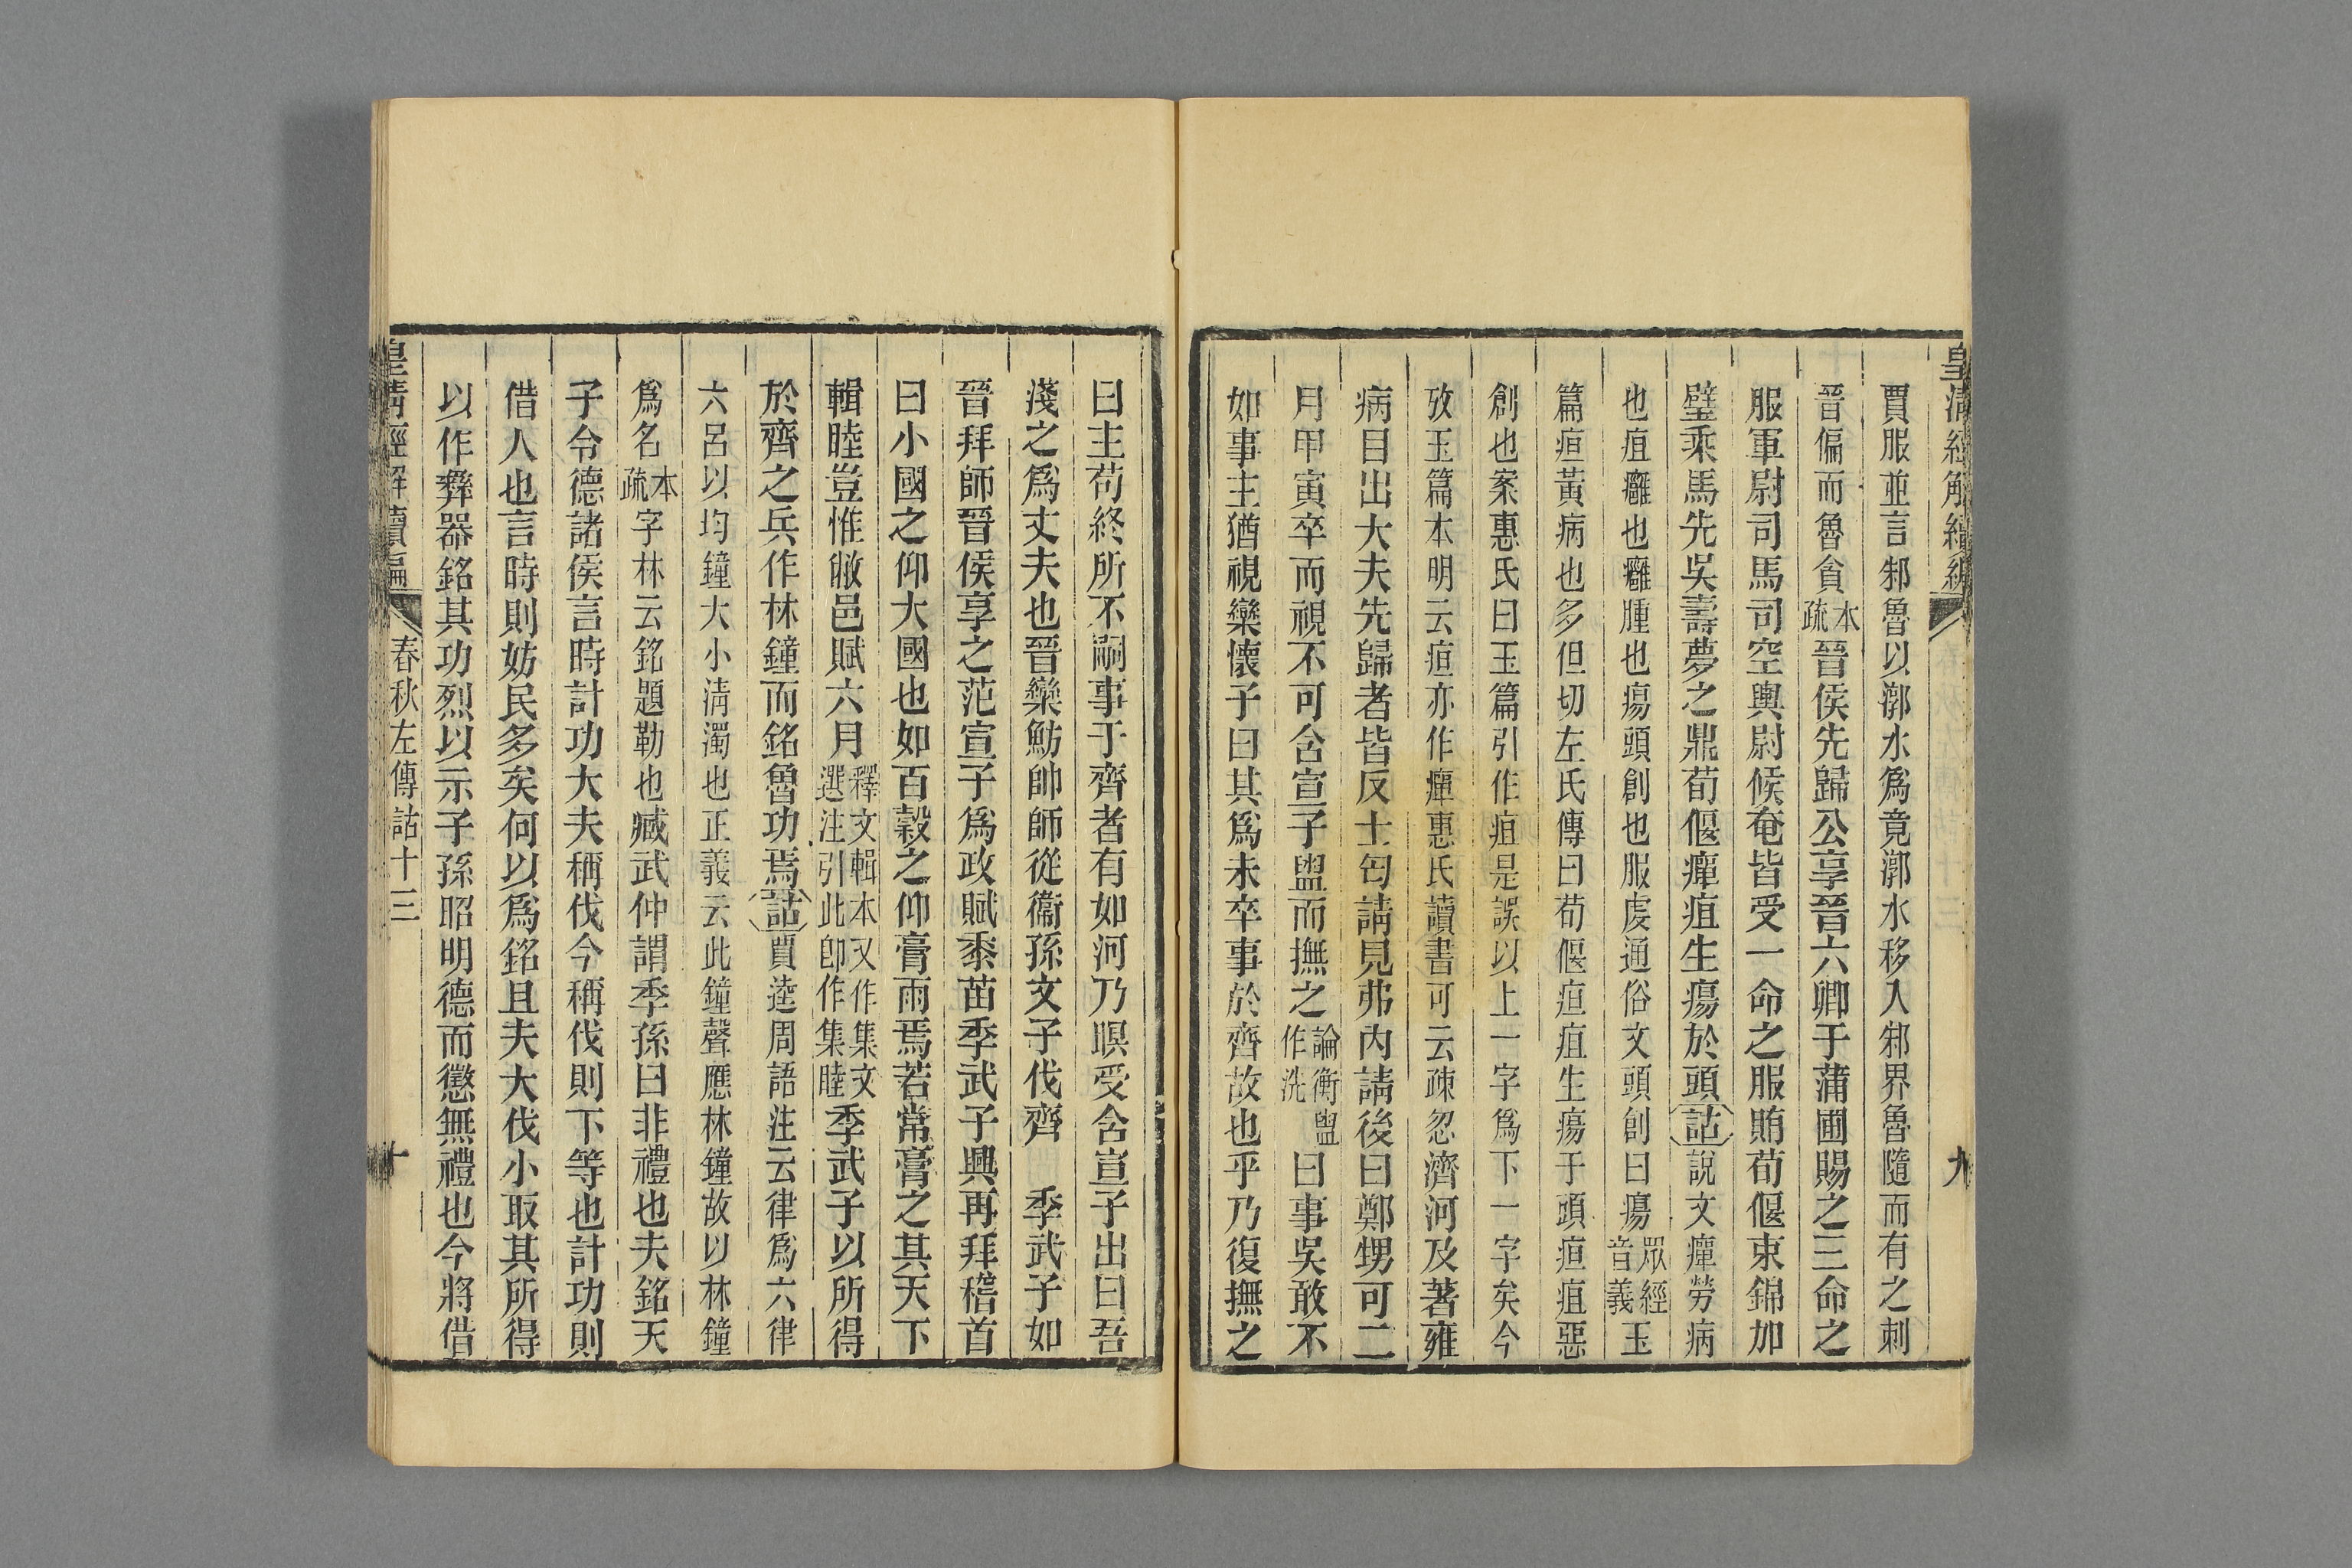 皇清經解續編
九
賈服並言邾魯以漷水爲竟漷水移入邾界魯隨而有之刺
晉偏而魯貪本疏晉侯先歸公享晉六卿于蒲圃賜之三命之
服軍尉司馬司空輿尉候奄皆受一命之服賄荀偃束錦加
璧乘馬先吳壽夢之鼎荀偃癉疽生瘍於頭詁說文癉勞病
也疽癰也癰腫也瘍頭創也服虔通俗文頭創曰瘍眾經音義玉
篇疸黃病也多但切左氏傳曰荀偃疸疽生瘍于頭疸疽惡
創也案惠氏曰玉篇引作疽是誤以上一字爲下一字矣今
攷玉篇本明云疸亦作癉惠氏讀書可云疎忽濟河及著雍
病目出大夫先歸者皆反士匄請見弗內請後曰鄭甥可二
月甲寅卒而視不可含宣子盥而撫之論衡盥作洗曰事吳敢不
如事主猶視欒懷子曰其爲未卒事於齊故也乎乃復撫之
曰主苟終所不嗣事于齊者有如河乃瞑受含宣子出曰吾
淺之爲丈夫也晉欒魴帥師從衞孫文子伐齊　季武子如
晉拜師晉侯享之范宣子爲政賦黍苗季武子興再拜稽首
曰小國之仰大國也如百穀之仰膏雨焉若常膏之其天下
輯睦豈惟敝邑賦六月釋文輯本又作集文選注引此卽作集睦季武子以所得
於齊之兵作林鐘而銘魯功焉詁賈逵周語注云律爲六律
六呂以均鐘大小淸濁也正義云此鐘聲應林鐘故以林鐘
爲名本疏字林云銘題勒也臧武仲謂季孫曰非禮也夫銘天
子令德諸侯言時計功大夫稱伐今稱伐則下等也計功則
借人也言時則妨民多矣何以爲銘且夫大伐小取其所得
以作彝器銘其功烈以示子孫昭明德而懲無禮也今將借
皇清經解續編
春秋左傳詁十三
十